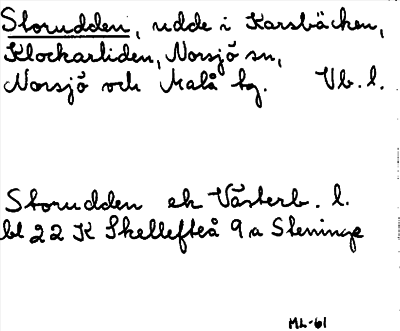 Storudden, udde i Karsbäcken,
Klockarliden, Norsjö sn,
Norsjö och Malå tg. Vb. l.
Storudden ek Västerb. l.
bl 22 K Skellefteå 9 a Steninge
ML-61